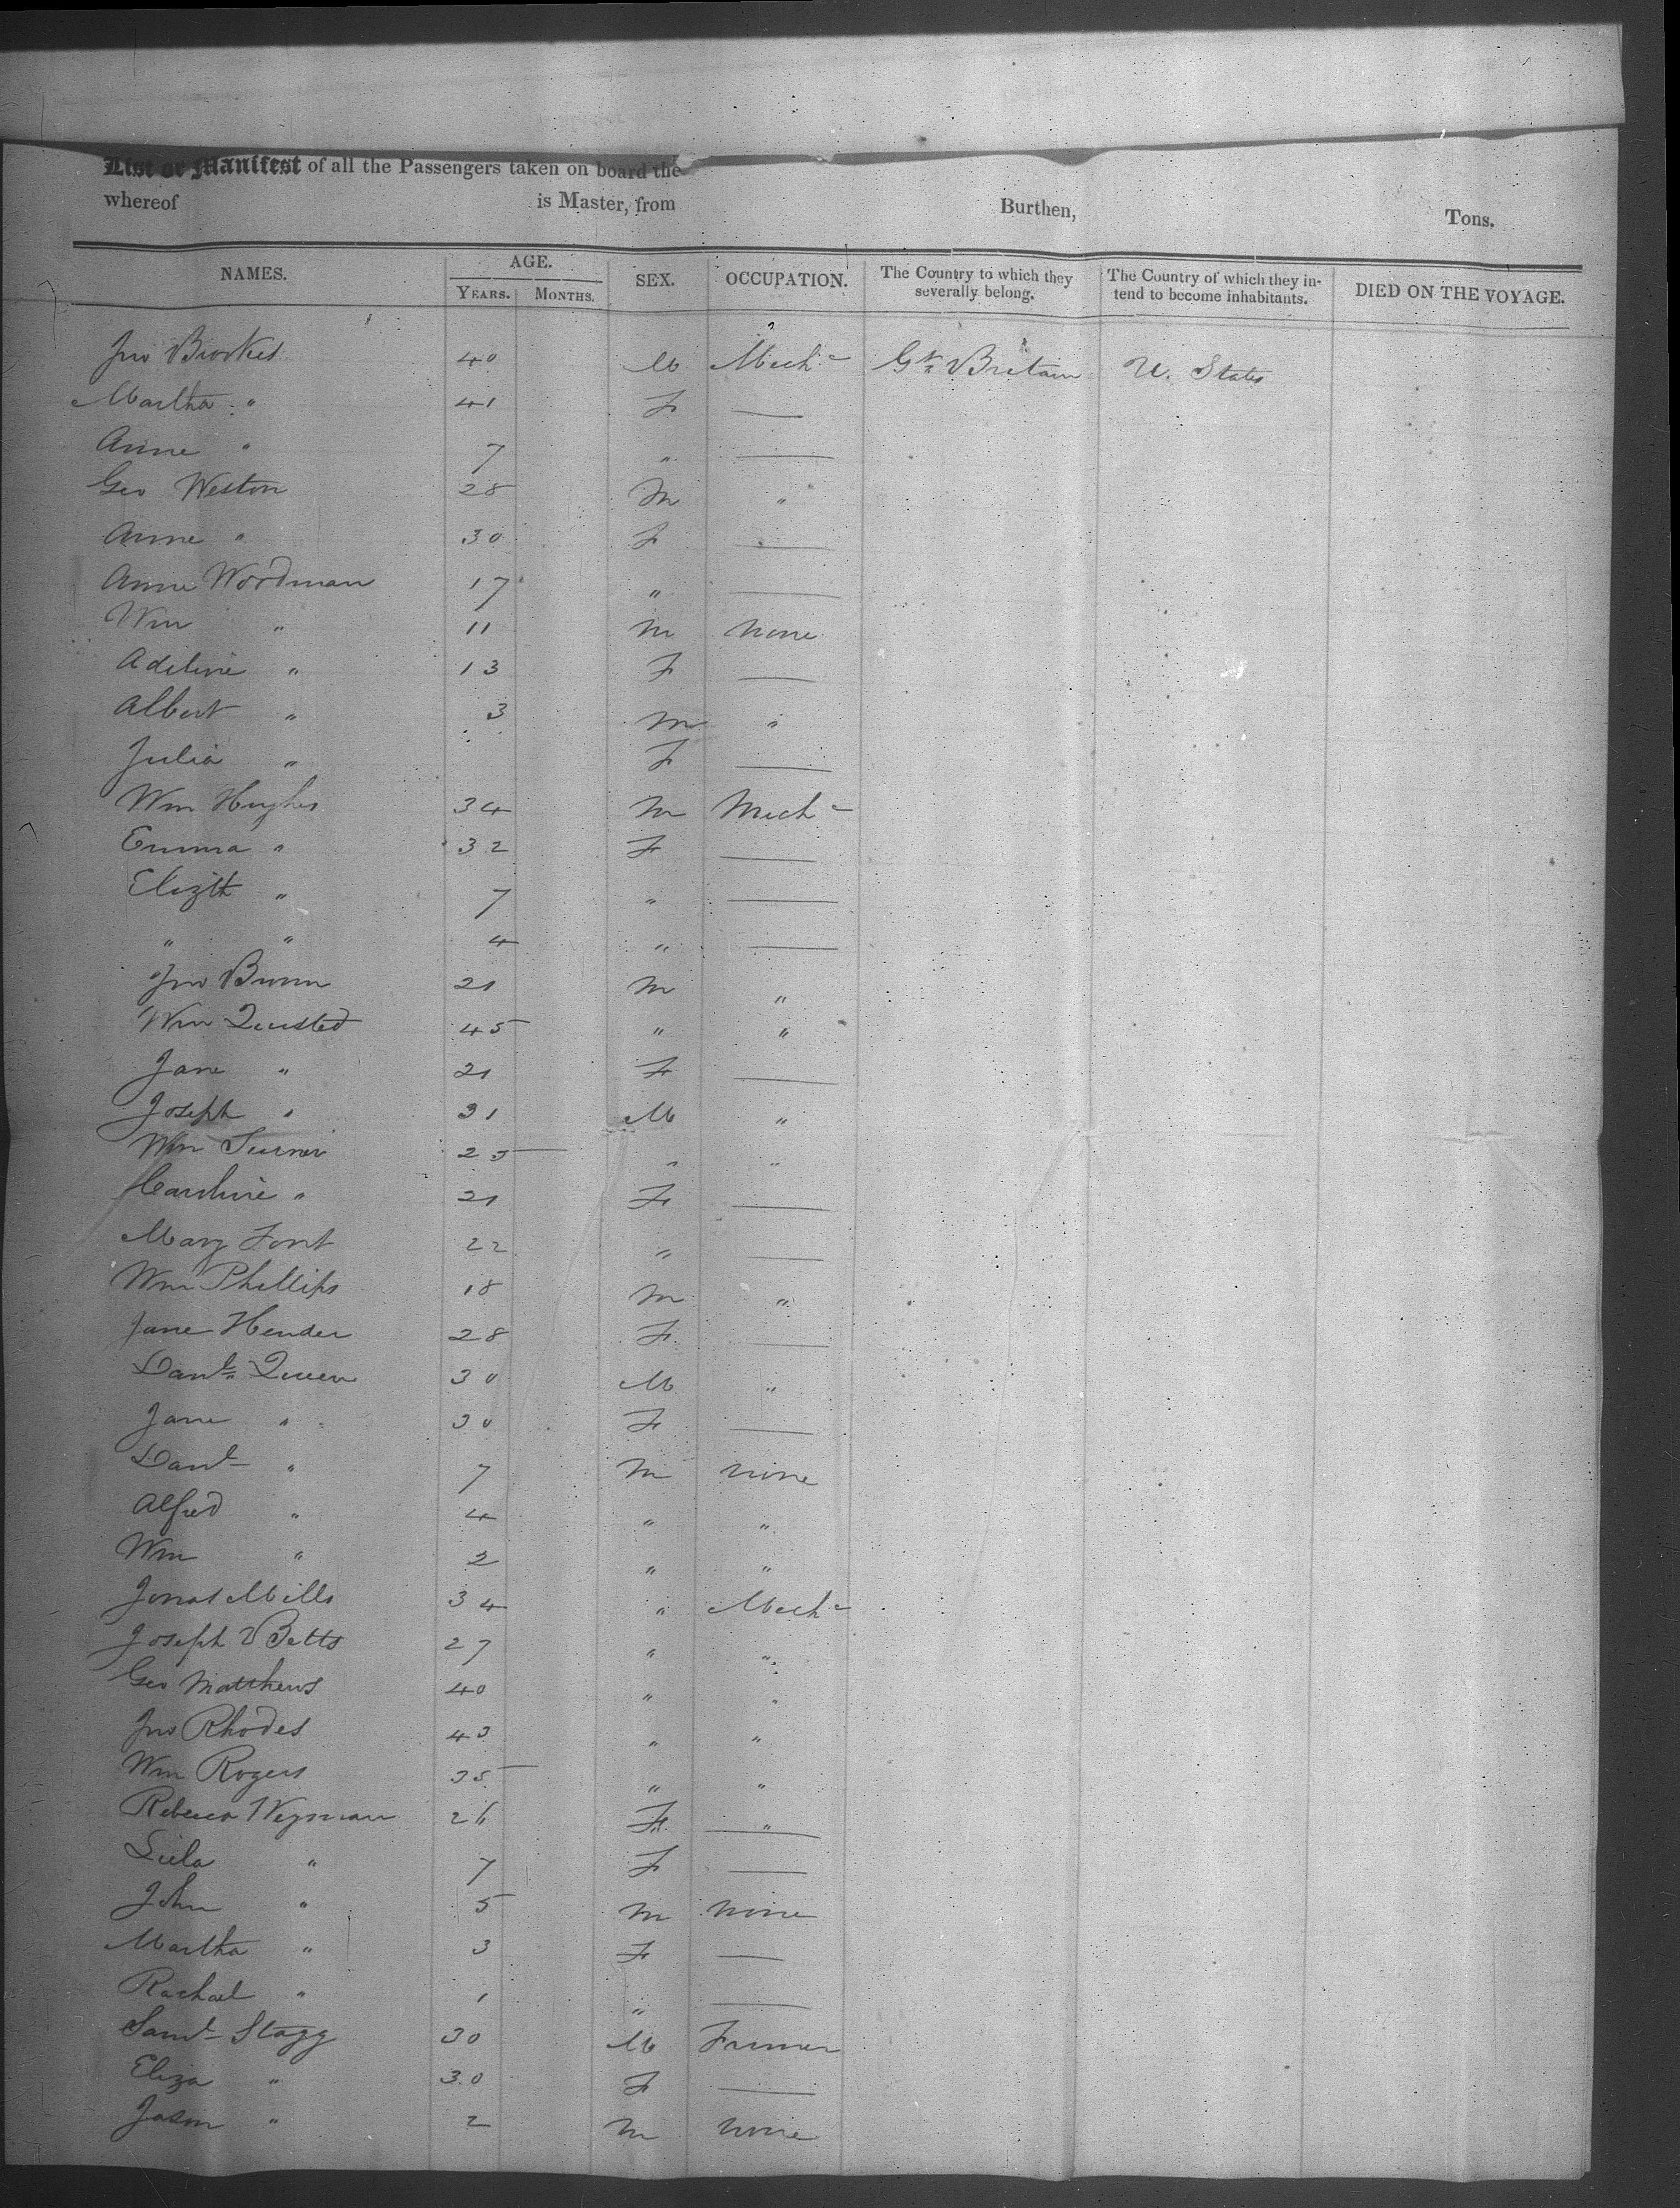 List or Manifest of all the Passengers taken on board the
whereof is Master, from Burthen, Tons.
NAMES. AGE. YEARS. MONTHS. SEX. OCCUPATION. The Country to which they severally belong. The Country of which they intend to become inhabitants. DIED ON THE VOYAGE.
Jno 40 M Mechc Gt Britain U. States
Martha " 41 F —
Anne " 7 " —
Geo Weston 28 M "
Anne " 30 F —
Anne Woodman 17 " —
Wm " 11 M none
Adeline " 13 F —
Albert " 3 M "
Julia " F —
Wm Hughes 34 M Mechc
Emma " 32 F —
Elizth " 7 " —
" " 4 " —
Jno Bunn 21 M "
Wm Quested 45 " "
Jane " 21 F —
Joseph " 31 M "
Wm 25 " "
Caroline " 21 F —
Mary Font 22 " —
Wm Phillips 18 M "
Jane Hender 28 F —
Danl Queen 30 M "
Jane " 30 F —
Danl " 7 M none
Alfred " 4 " "
Wm " 2 " "
Jonas Mills 34 " Mechc
Joseph Betts 27 " "
Geo Matthews 40 " "
Jno Rhodes 43 " "
Wm Rogers 35 " "
Rebecca Weyman 26 F "
" 7 F —
John " 5 M none
Martha " 3 F —
Rachael " 1 " —
Saml Stagg 30 M Farmer
Eliza " 30 F —
Jason " 2 M none